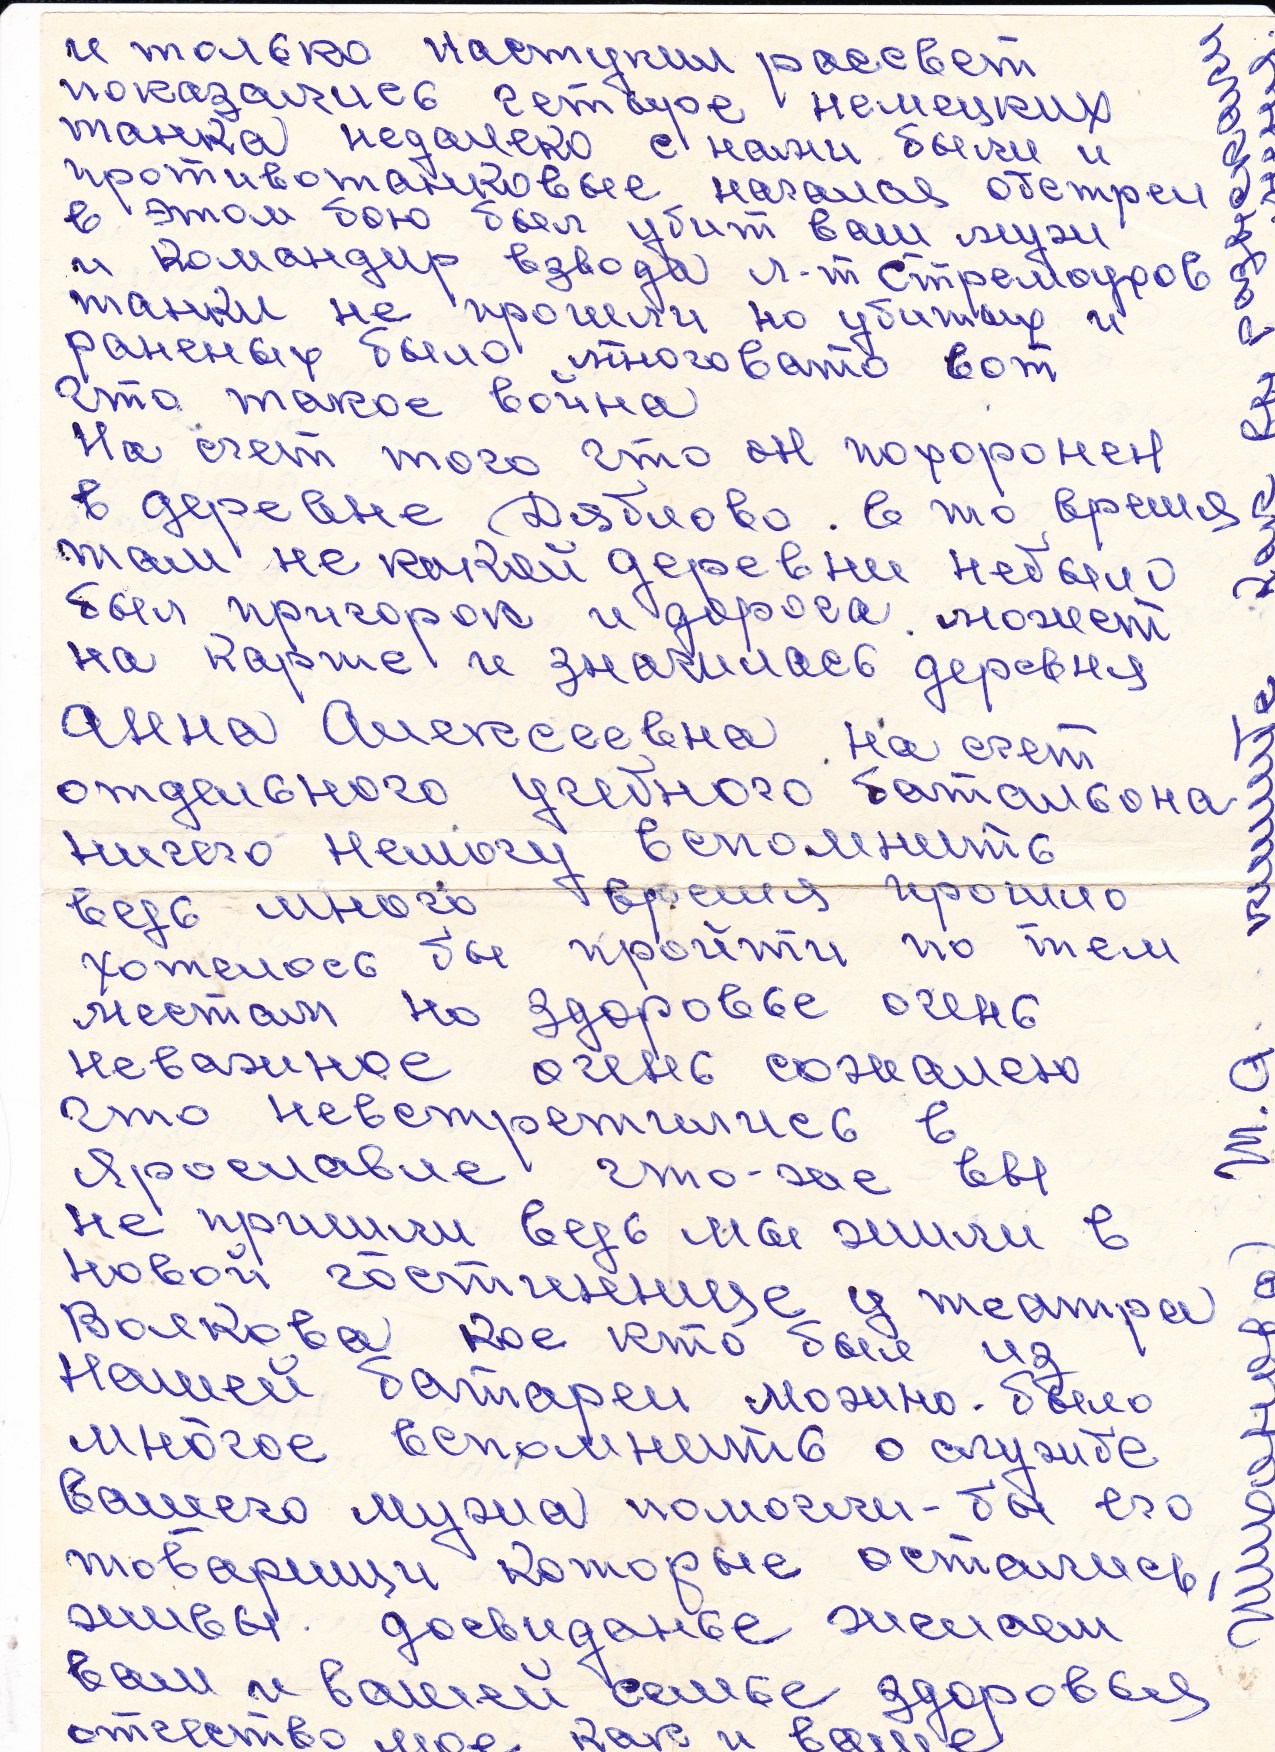 и только наступил рассвет
показались четыре немецких
танка недалеко с нами были и
противотанковые началая обстрел
в этом бою был убит ваш муж
и командир взвода л-т Стремоухов
танки не прошли но убитых и
раненых было многовато вот
что такое война
На счет того что он похоронен
в деревне Дяблово. в то время
там не какой деревни небыло
был пригорок и дорога. может
на карте и значилась деревня
Анна Алексеевна на счет
отдельного учебного батальона
ничего немогу вспомнить
ведь много время прошло
хотелось бы пройти по тем
местам но здоровье очень
неважное очень сожалею
что невстретились в
Ярославле что-же вы
не пришли ведь мы жили в
новой гостиннице у театра
Волкова кое кто был из
нашей батареи можно было
многое вспомнить о службе
вашего мужа помогли-бы его
товарищи которые остались,
живы. досвиданье желаем
вам и вашей семье здоровья
отчество мое как и ваше
пишите